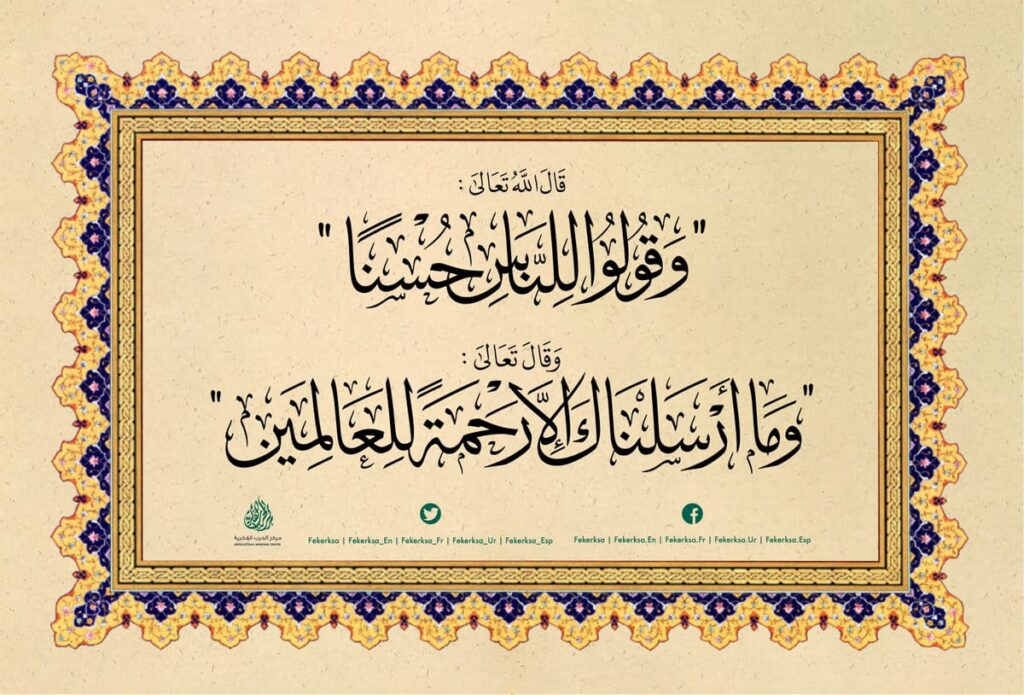 قَالَ اللَّهُ تَعَالَىٰ :
" وَقُولُوا لِلنَّاسِ حُسْنًا "
وَقَالَ تَعَالَىٰ :
" وَمَا أَرْسَلْنَاكَ إِلَّا رَحْمَةً لِلْعَالَمِين "
مركز الحرب الفكرية
INTELLECTUAL WARFARE CENTER
Fekerksa | Fekerksa_En | Fekerksa_Fr | Fekerksa_Ur | Fekerksa_Esp
Fekerksa | Fekerksa.En | Fekerksa.Fr | Fekerksa.Ur | Fekerksa.Esp